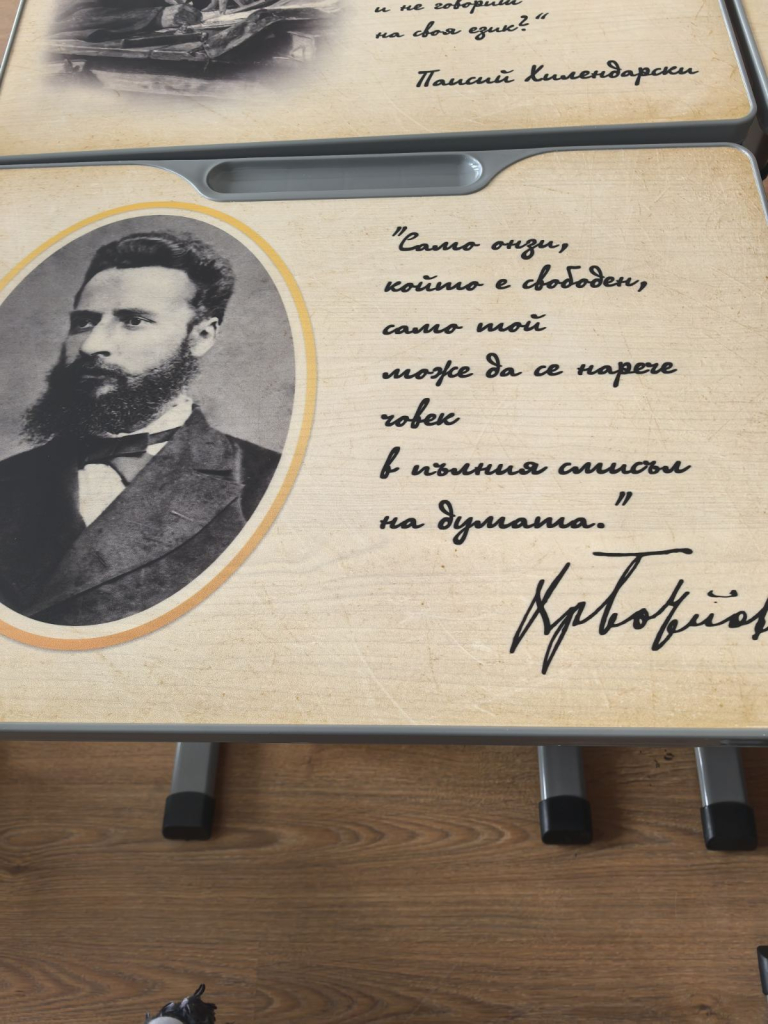 и не говориш
на своя език?“
Паисий Хилендарски
"Само онзи,
който е свободен,
само той
може да се нарече
човек
в пълния смисъл
на думата."
Хр Ботйов